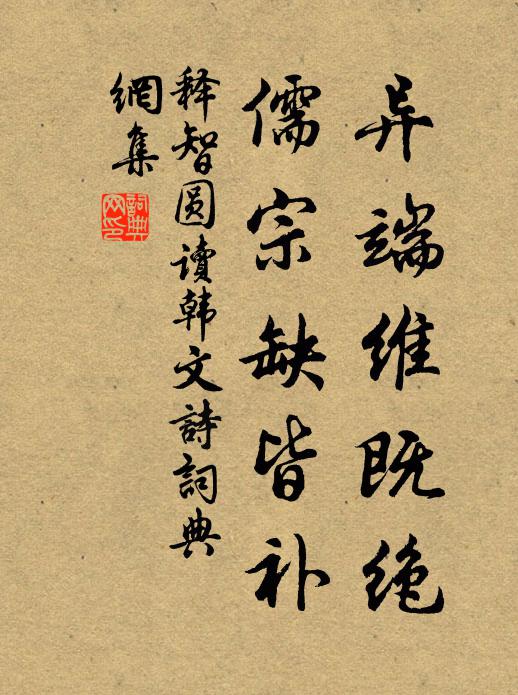 异端维既绝
儒宗缺皆补
释智圆读韩文詩詞典
網集
詞典
网印